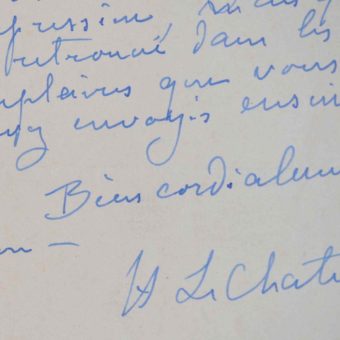 pression,
retrouvé dans les
mplaires que vous
ez envoyés ensui
Bien cordialem
on —
H Le Chate